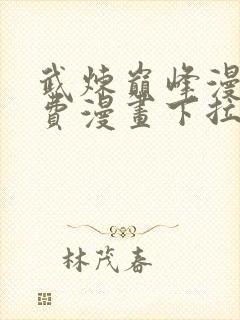 武煉巔峰漫
費漫畫下拉
林茂春